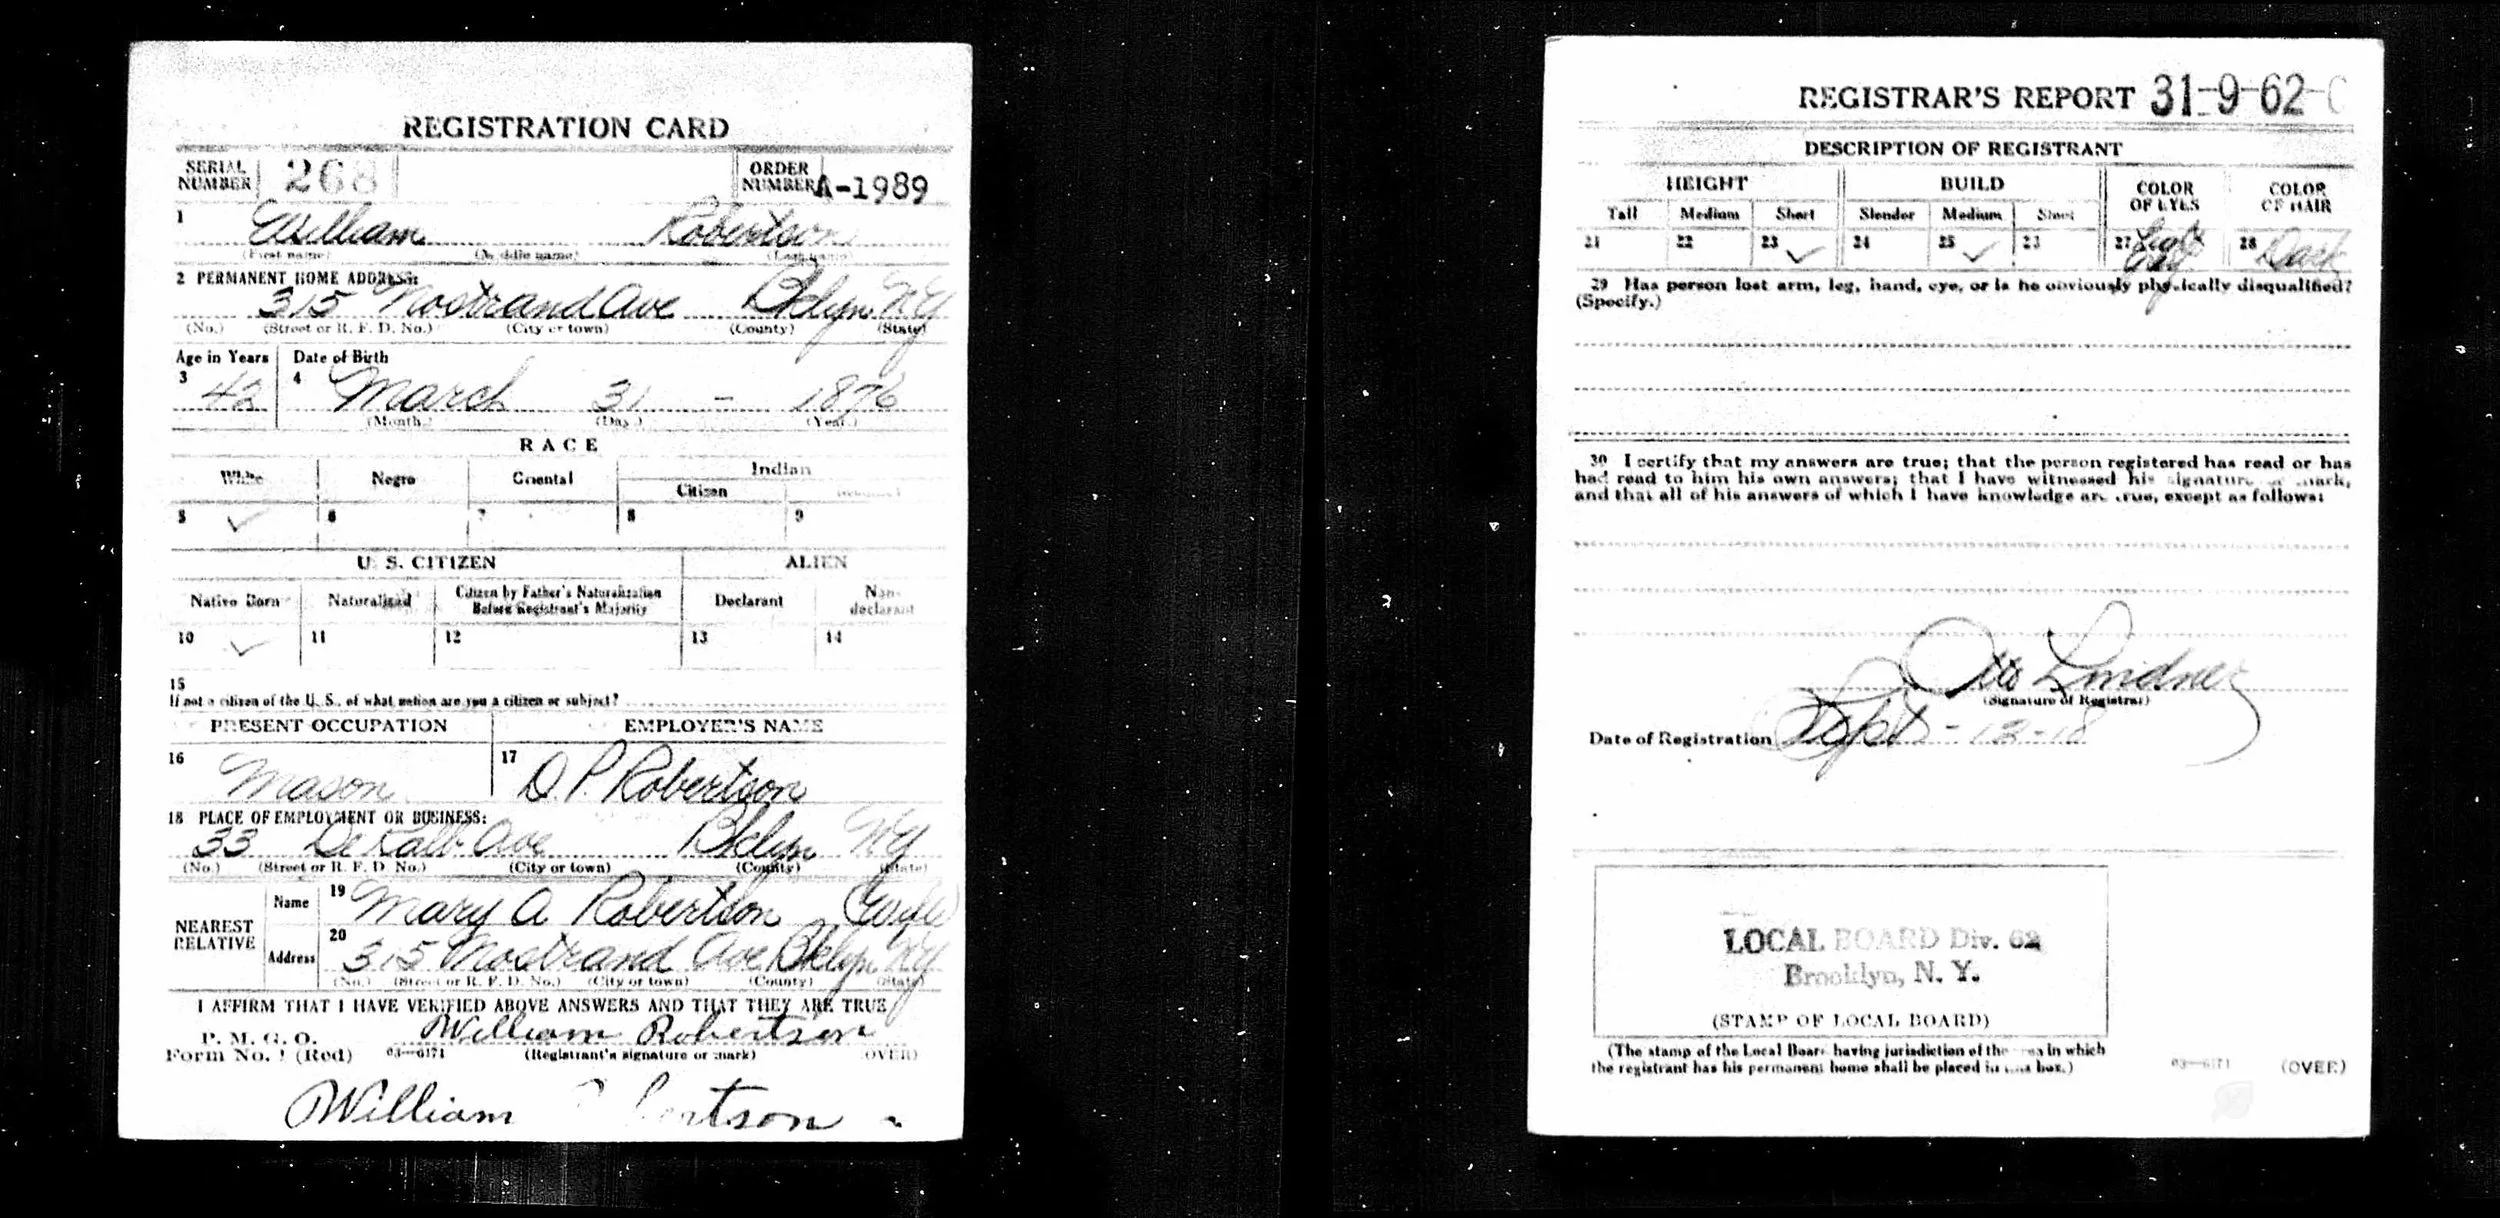 REGISTRATION CARD
SERIAL NUMBER 268 ORDER NUMBER A-1989
1 William Robertson
(First name) (Middle name) (Last name)
2 PERMANENT HOME ADDRESS:
315 Nostrand Ave Bklyn NY
(No.) (Street or R. F. D. No.) (City or town) (County) (State)
Age in Years Date of Birth
3 42 4 March 31 - 1876
(Month.) (Day.) (Year.)
RACE
White Negro Oriental Indian
Citizen
5 ✓ 6 7 8 9
U. S. CITIZEN ALIEN
Native Born Naturalized Citizen by Father's Naturalization Before Registrant's Majority Declarant Non-declarant
10 ✓ 11 12 13 14
15
If not a citizen of the U. S., of what nation are you a citizen or subject?
PRESENT OCCUPATION EMPLOYER'S NAME
16 Mason 17 D. P. Robertson
18 PLACE OF EMPLOYMENT OR BUSINESS:
33 De Kalb Ave Bklyn NY
(No.) (Street or R. F. D. No.) (City or town) (County) (State)
NEAREST RELATIVE
Name 19 Mary A Robertson (Wife)
Address 20 315 Nostrand Ave Bklyn NY
(No.) (Street or R. F. D. No.) (City or town) (County) (State)
I AFFIRM THAT I HAVE VERIFIED ABOVE ANSWERS AND THAT THEY ARE TRUE
P. M. G. O.
Form No. 1 (Red) 03—6171 William Robertson
(Registrant's signature or mark) (OVER)
William Robertson
REGISTRAR'S REPORT 31-9-62-C
DESCRIPTION OF REGISTRANT
HEIGHT BUILD COLOR OF EYES COLOR OF HAIR
Tall Medium Short Slender Medium Stout
21 22 23 ✓ 24 25 ✓ 27 Light 28 Dark
29 Has person lost arm, leg, hand, eye, or is he obviously physically disqualified?
(Specify.)
30 I certify that my answers are true; that the person registered has read or has
had read to him his own answers; that I have witnessed his signature or mark,
and that all of his answers of which I have knowledge are true, except as follows:
Otto Lindner
(Signature of Registrar)
Date of Registration Sept - 12 - 18
LOCAL BOARD Div. 62
Brooklyn, N. Y.
(STAMP OF LOCAL BOARD)
(The stamp of the Local Board having jurisdiction of the area in which
the registrant has his permanent home shall be placed in this box.)
03—6171 (OVER)